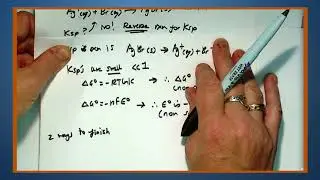 Ksp? → No! Reverse rxn for Ksp
rxn is AgBr(s) → Ag+(aq) + Br-
Ksp's are small << 1
ΔG° = -RTlnK → ∴ ΔG°
(non
ΔG° = -nFE° → ∴ E° is -
(non
2 ways to finish